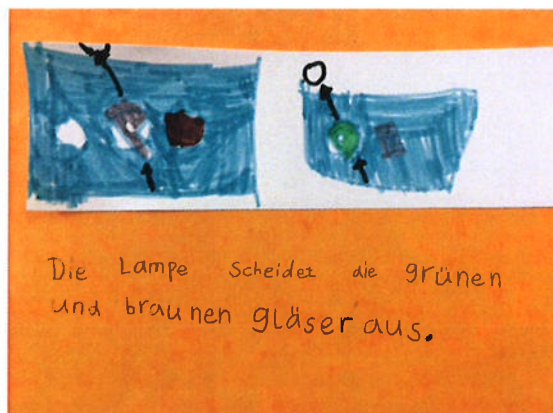 Die Lampe scheidet die grünen
und braunen gläser aus.